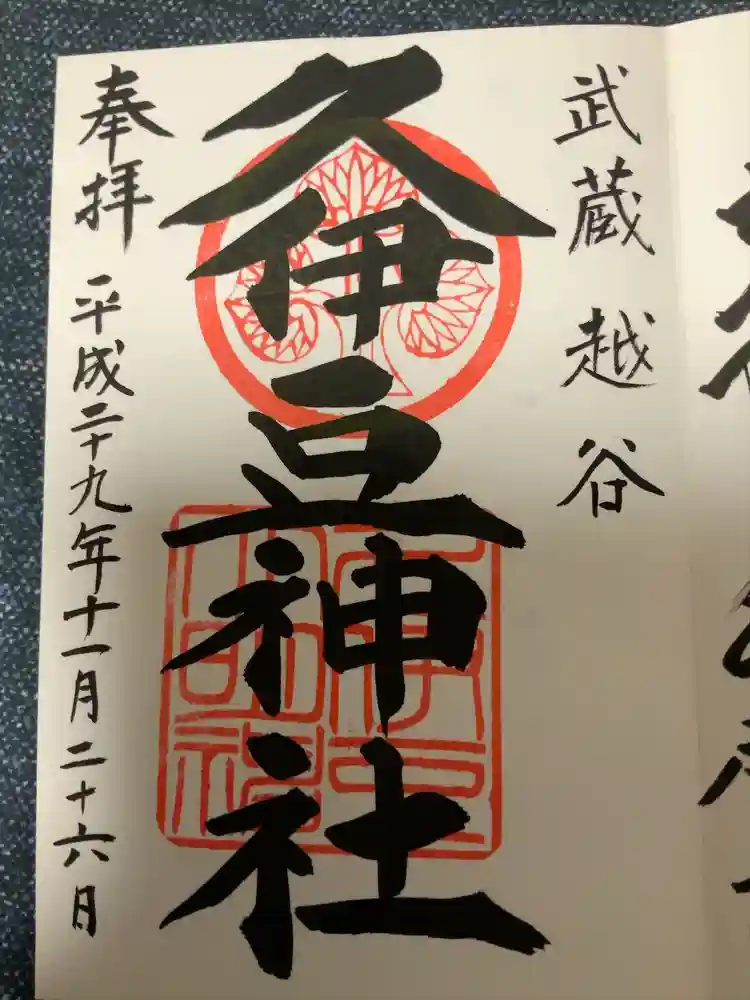 武蔵越谷
久伊豆神社
奉拝 平成二十九年十一月二十六日